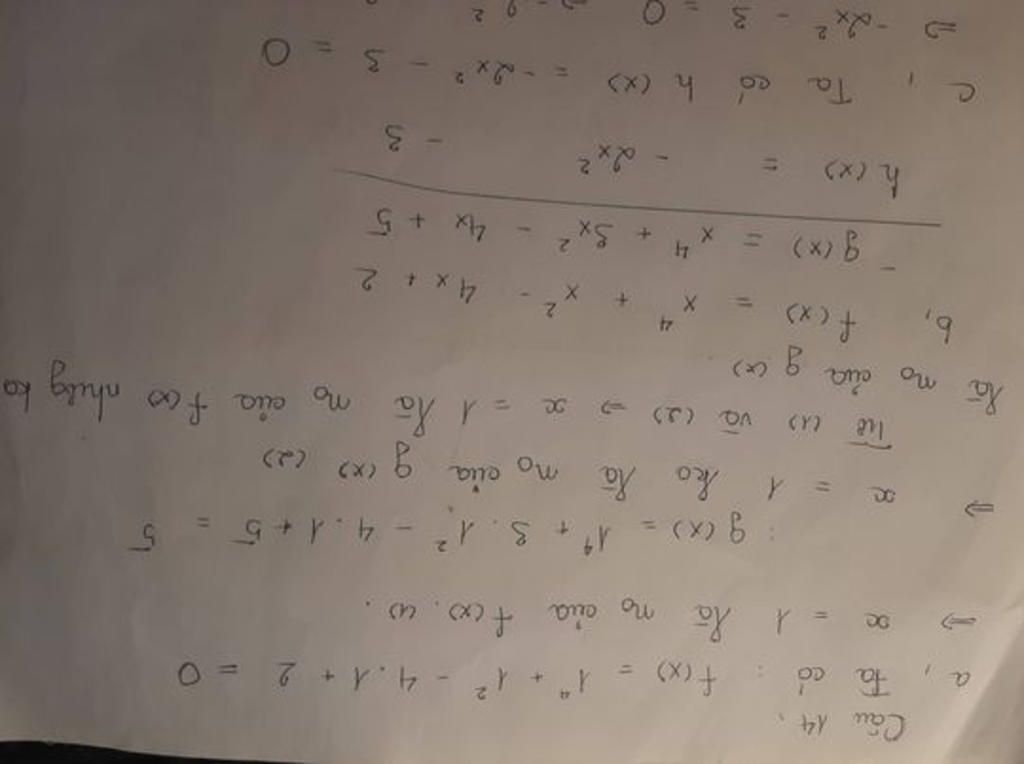 Câu 14.
a, Ta có : f(x) = 1⁴ + 1² - 4.1 + 2 = 0
=> x = 1 là no của f(x). (1).
: g(x) = 1⁴ + 3.1² - 4.1 + 5 = 5
=> x = 1 ko là no của g(x) (2)
Từ (1) và (2) => x = 1 là no của f(x) nhưng ko
là no của g(x)
b, f(x) = x⁴ + x² - 4x + 2
- g(x) = x⁴ + 3x² - 4x + 5
h(x) = - 2x² - 3
c, Ta có h(x) = -2x² - 3 = 0
=> -2x² - 3 = 0